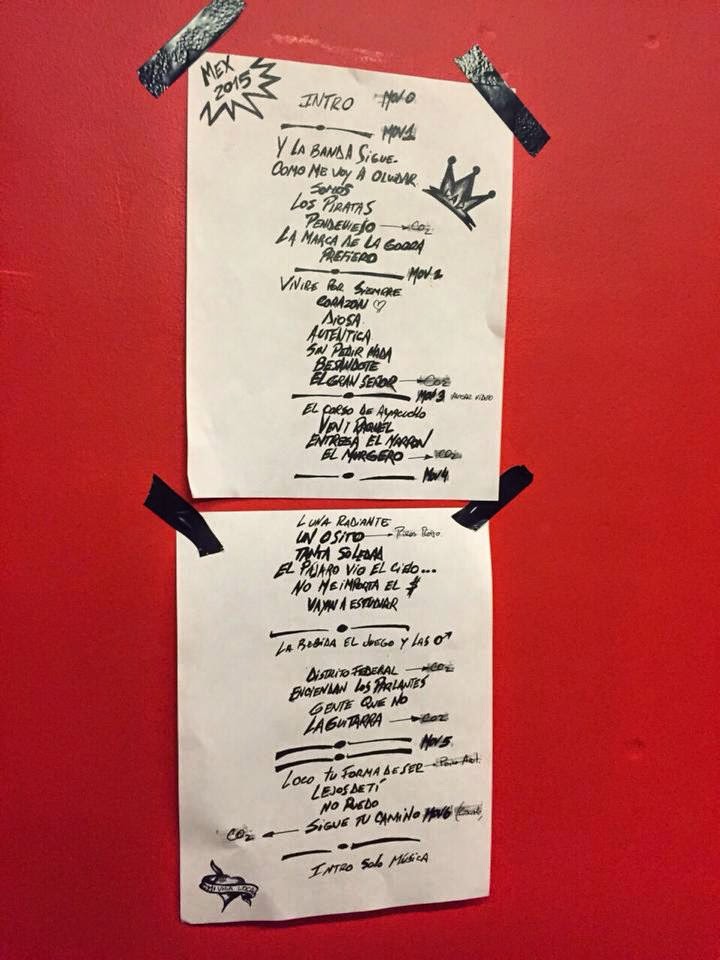 MEX
2015
INTRO MOV0
MOV1
Y LA BANDA SIGUE
COMO ME VOY A OLVIDAR
SOMOS
LOS PIRATAS
PENDEVIEJO → CO2
LA MARCA DE LA GORRA
PREFIERO
MOV.2
VIVIRE POR SIEMPRE
CORAZON ♡
DIOSA
AUTENTICA
SIN PEDIR NADA
BESANDOTE
EL GRAN SEÑOR → CO2
MOV3 VIDEO
EL CORSO DE AYACUCHO
VENI RAQUEL
ENTREGA EL MARRON
EL MURGERO → CO2
MOV4
LUNA RADIANTE
UN OSITO →
TANTA SOLEDAD
EL PAJARO VIO EL CIELO...
NO ME IMPORTA EL $
VAYAN A ESTUDIAR
LA BEBIDA EL JUEGO Y LAS ♂
DISTRITO FEDERAL → CO2
ENCIENDAN LOS PARLANTES
GENTE QUE NO
LA GUITARRA → CO2
MOV5
LOCO TU FORMA DE SER →
LEJOS DE TÍ
NO PUEDO
CO2 ← SIGUE TU CAMINO MOV6
INTRO SOLO MÚSICA
MI VIDA LOCA